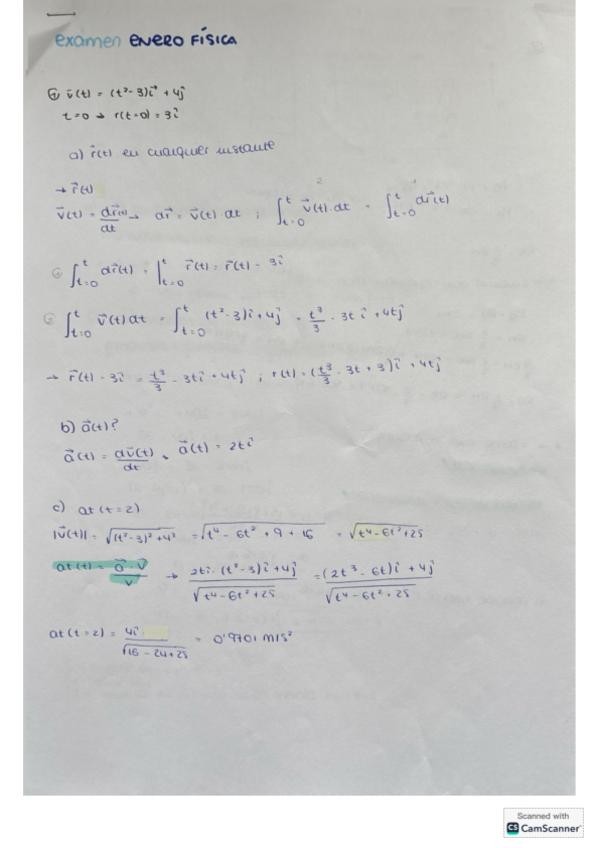 examen ENERO FÍSICA
① v⃗(t) = (t²- 3)i⃗ + 4j
t=0 → r(t=0) = 3i
a) r⃗(t) en cualquier instante
→ r⃗(t)
v⃗(t) = dr⃗(t)/dt → dr⃗ = v⃗(t) · dt ; ∫_{t=0}^{t} v⃗(t)·dt = ∫_{t=0}^{t} dr⃗(t)
∫_{t=0}^{t} dr⃗(t) = |_{t=0}^{t} r⃗(t) = r⃗(t) - 3i
∫_{t=0}^{t} v⃗(t) dt = ∫_{t=0}^{t} (t²-3)i + 4j = t³/3 - 3t i + 4tj
→ r⃗(t) - 3i = t³/3 - 3ti + 4tj ; r(t) = (t³/3 - 3t + 3)i + 4tj
b) a⃗(t)?
a⃗(t) = dv⃗(t)/dt → a⃗(t) = 2ti
c) at (t=2)
|v⃗(t)| = √((t²-3)²+4²) = √(t⁴ - 6t² + 9 + 16) = √(t⁴-6t²+25)
at(t) = a⃗·v⃗/v → 2ti·(t²-3)i+4j/√(t⁴-6t²+25) = (2t³-6t)i + 4j/√(t⁴-6t²+25)
at(t=2) = 4i/√(16-24+25) = 0'9701 m/s²
Scanned with
CS CamScanner